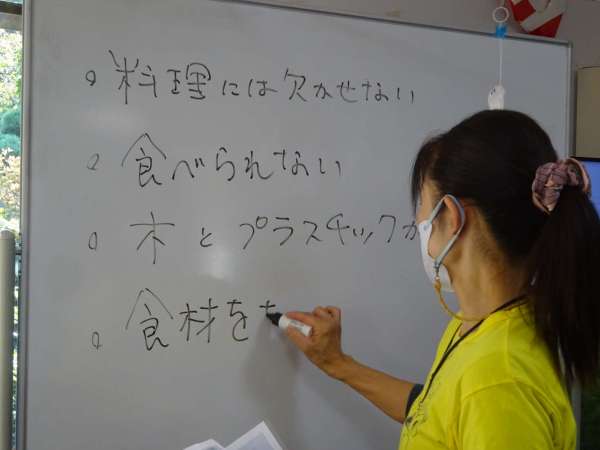 。料理には欠かせない
。食べられない
。木とプラスチックが
。食材を